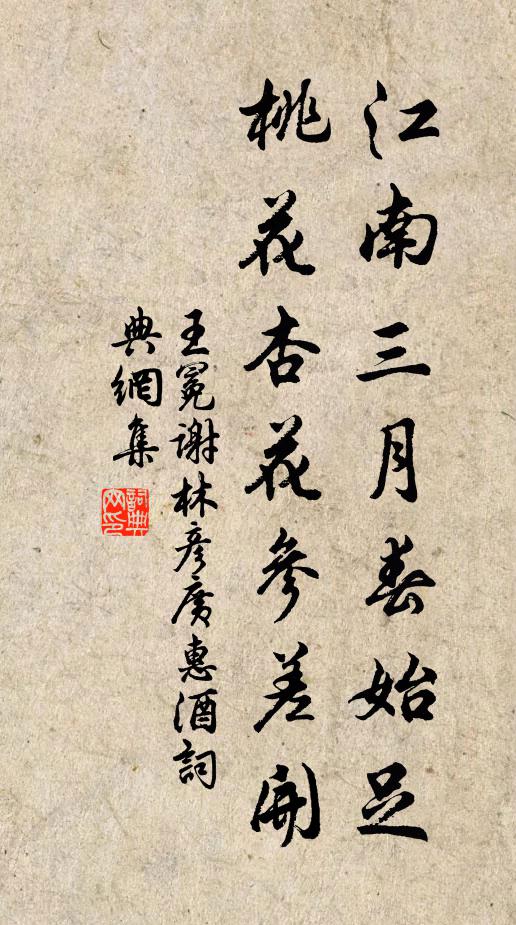 江南三月春始足
桃花杏花參差開
王冕謝林彥廣惠酒詞
典網集
詞典
网印